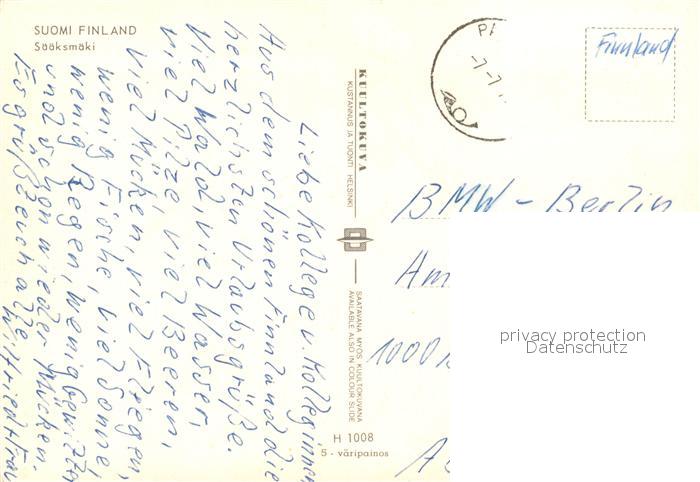 SUOMI FINLAND
Sääksmäki
Liebe Kollege u. Kolleginnen
Aus dem schönen Finnland die
herzlichsten Urlaubsgrüße.
Viel Wald, viel Wasser,
viel Pilze, viel Beeren,
viel Mücken, viel Fliegen,
wenig Fische, viel Sonne,
wenig Regen, wenig Gewitter
und schon wieder Mücken.
Es grüßt euch alle
Wilfried
KUULTOKUVA
KUSTANNUS JA TUONTI HELSINKI
SAATAVANA MYÖS KUULTOKUVANA
AVAILABLE ALSO IN COLOUR SLIDE
H 1008
5 - väripainos
Finnland
BMW - Berlin
Am
1000
privacy protection
Datenschutz